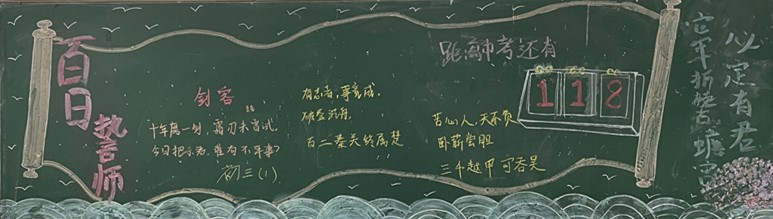 百日
誓师
剑客
十年磨一剑，霜刃未曾试
今日把示君，谁有不平事？
初三（1）
有志者，事竟成，
破釜沉舟，
百二秦关终属楚
苦心人，天不负
卧薪尝胆
三千越甲可吞吴
距离中考还有
118
必定有君
它年折桂古蟾宫